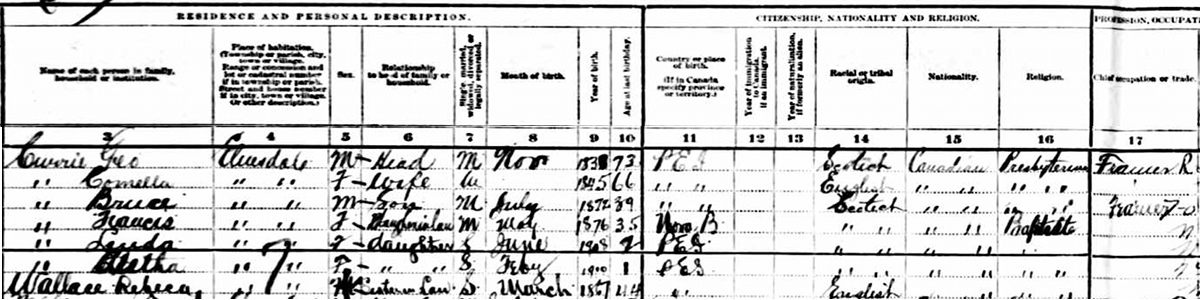 RESIDENCE AND PERSONAL DESCRIPTION. CITIZENSHIP, NATIONALITY AND RELIGION. PROFESSION, OCCUPAT
Name of each person in family, household or institution. Place of habitation. (Township or parish, city, town or village. Range or concession and lot or cadastral number if in township or parish. Street and house number if in city, town or village. Or other description.) Sex. Relationship to head of family or household. Single, married, widowed, divorced or legally separated. Month of birth. Year of birth. Age at last birthday. Country or place of birth. (If in Canada specify province or territory.) Year of immigration to Canada, if an immigrant. Year of naturalization, if formerly an alien. Racial or tribal origin. Nationality. Religion. Chief occupation or trade.
3 4 5 6 7 8 9 10 11 12 13 14 15 16 17
Currie Geo Elmsdale M Head M Nov 1838 73 P E I Scotch Canadian Presbyterian Framer R
" Cornella " " F wife 1845 66 " " English " " " "
" Bruce " " M son M July 1872 39 " " Scotch " " " " Framer
" Francis " " F M May 1876 35 Nova B " " " " Baptist
" Linda " " F daughter S June 1908 2 P E I " " " "
" " " F " " S Feby 1910 1 P E I " " " " " "
Wallace Rebecca " " Sister in Law S March 1867 44 " English " " " "